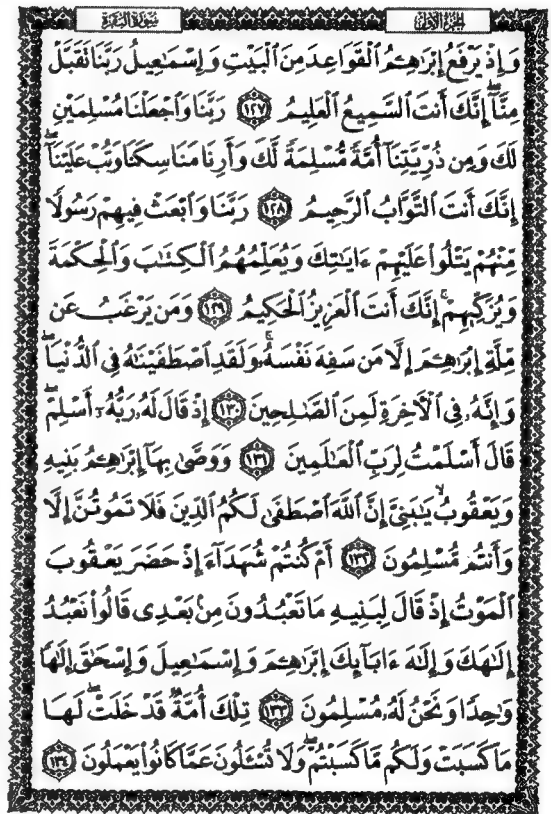 الجزء الأول
سورة البقرة
وَإِذْ يَرْفَعُ إِبْرَٰهِـۧمُ ٱلْقَوَاعِدَ مِنَ ٱلْبَيْتِ وَإِسْمَٰعِيلُ رَبَّنَا تَقَبَّلْ
مِنَّآ ۖ إِنَّكَ أَنتَ ٱلسَّمِيعُ ٱلْعَلِيمُ ١٢٧ رَبَّنَا وَٱجْعَلْنَا مُسْلِمَيْنِ
لَكَ وَمِن ذُرِّيَّتِنَآ أُمَّةً مُّسْلِمَةً لَّكَ وَأَرِنَا مَنَاسِكَنَا وَتُبْ عَلَيْنَآ ۖ
إِنَّكَ أَنتَ ٱلتَّوَّابُ ٱلرَّحِيمُ ١٢٨ رَبَّنَا وَٱبْعَثْ فِيهِمْ رَسُولًا
مِّنْهُمْ يَتْلُوا۟ عَلَيْهِمْ ءَايَٰتِكَ وَيُعَلِّمُهُمُ ٱلْكِتَٰبَ وَٱلْحِكْمَةَ
وَيُزَكِّيهِمْ ۚ إِنَّكَ أَنتَ ٱلْعَزِيزُ ٱلْحَكِيمُ ١٢٩ وَمَن يَرْغَبُ عَن
مِّلَّةِ إِبْرَٰهِـۧمَ إِلَّا مَن سَفِهَ نَفْسَهُۥ ۚ وَلَقَدِ ٱصْطَفَيْنَٰهُ فِى ٱلدُّنْيَا ۖ
وَإِنَّهُۥ فِى ٱلْـَٔاخِرَةِ لَمِنَ ٱلصَّٰلِحِينَ ١٣٠ إِذْ قَالَ لَهُۥ رَبُّهُۥٓ أَسْلِمْ ۖ
قَالَ أَسْلَمْتُ لِرَبِّ ٱلْعَٰلَمِينَ ١٣١ وَوَصَّىٰ بِهَآ إِبْرَٰهِـۧمُ بَنِيهِ
وَيَعْقُوبُ يَٰبَنِىَّ إِنَّ ٱللَّهَ ٱصْطَفَىٰ لَكُمُ ٱلدِّينَ فَلَا تَمُوتُنَّ إِلَّا
وَأَنتُم مُّسْلِمُونَ ١٣٢ أَمْ كُنتُمْ شُهَدَآءَ إِذْ حَضَرَ يَعْقُوبَ
ٱلْمَوْتُ إِذْ قَالَ لِبَنِيهِ مَا تَعْبُدُونَ مِنۢ بَعْدِى قَالُوا۟ نَعْبُدُ
إِلَٰهَكَ وَإِلَٰهَ ءَابَآئِكَ إِبْرَٰهِـۧمَ وَإِسْمَٰعِيلَ وَإِسْحَٰقَ إِلَٰهًا
وَٰحِدًا وَنَحْنُ لَهُۥ مُسْلِمُونَ ١٣٣ تِلْكَ أُمَّةٌ قَدْ خَلَتْ ۖ لَهَا
مَا كَسَبَتْ وَلَكُم مَّا كَسَبْتُمْ ۖ وَلَا تُسْـَٔلُونَ عَمَّا كَانُوا۟ يَعْمَلُونَ ١٣٤